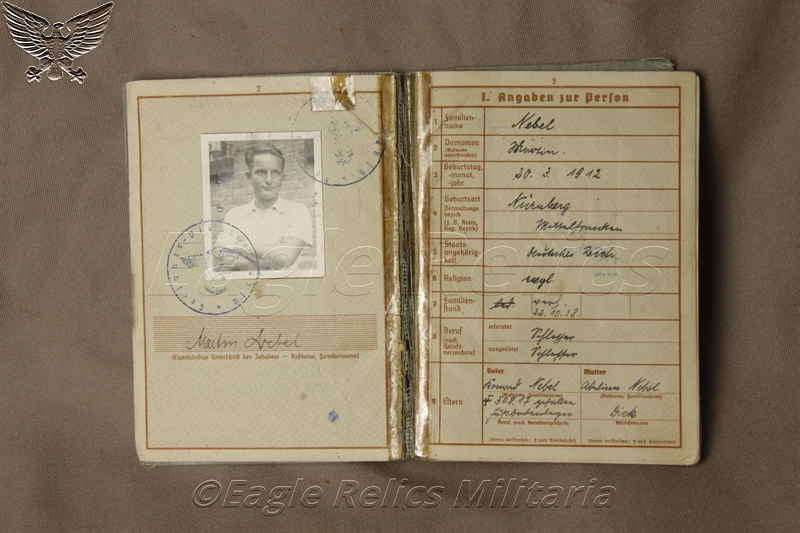 2
Martin Nebel
(Eigenhändige Unterschrift des Inhabers — Rufname, Familienname)
3
I. Angaben zur Person
1 Familien-
name
Nebel
2 Vornamen
(Rufname
unterstreichen)
Martin
3 Geburtstag,
-monat,
-jahr
20. 3. 1912
4 Geburtsort
Verwaltungs-
bezirk
(z. B. Kreis,
Reg. Bezirk)
Nürnberg
Mittelfranken
5 Staats-
angehörig-
keit
Deutsches Reich
6 Religion
evgl.
7 Familien-
stand
led. verh.
22.10.38.
8 Beruf
(nach
Berufs-
verzeichnis)
erlernter
Schlosser
ausgeübter
Schlosser
9 Eltern
Vater
Konrad Nebel
(Rufname, Familienname)
30.8.17 gefallen
Beruf (nach Berufsverzeichnis)
(wenn verstorben: † und Sterbejahr)
Mutter
Nebel
(Rufname, Familienname)
Dick
Mädchenname
(wenn verstorben: † und Sterbejahr)
Eagle Relics
©Eagle Relics Militaria